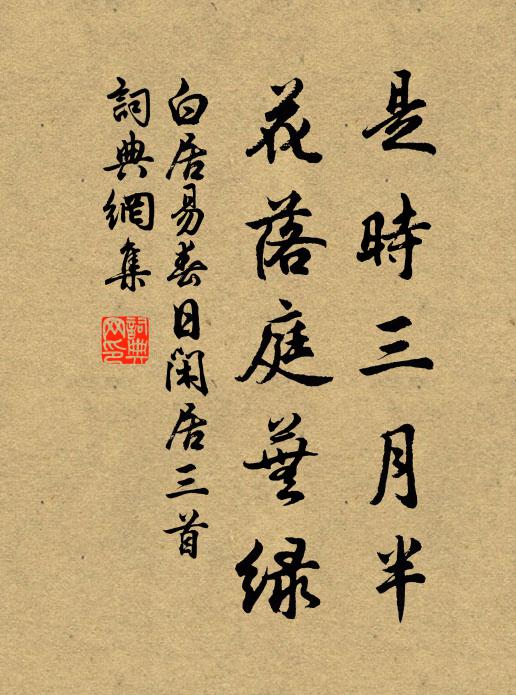 是時三月半
花落庭蕪綠
白居易春日閑居三首
詞典網集
詞典網印